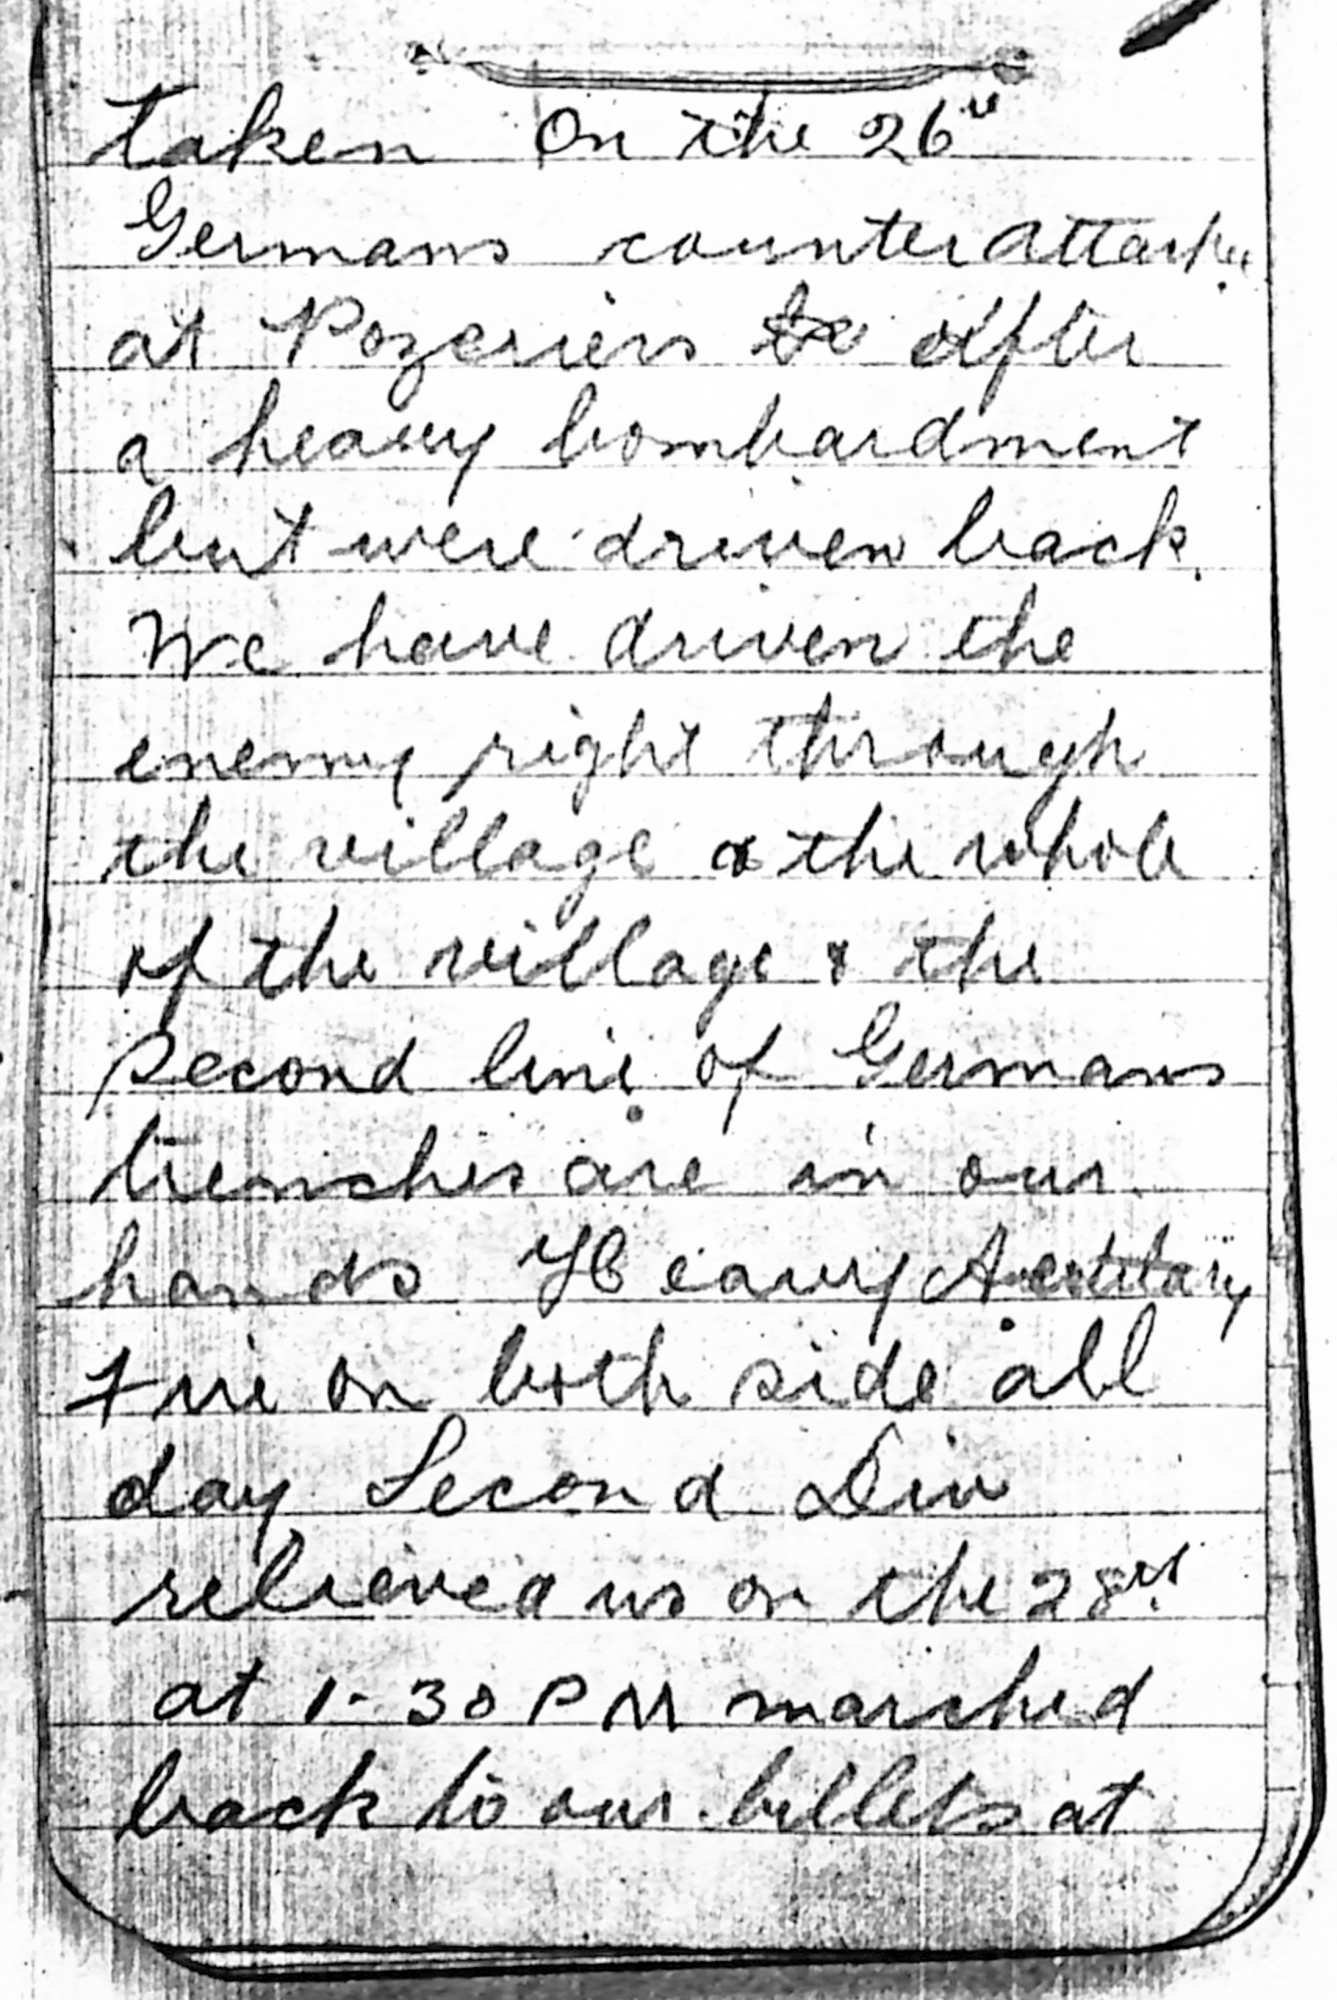 taken On the 26th
Germans counterattacked
at Pozeriers after
a heavy bombardment
but were driven back.
We have driven the
enemy right through
the village & the whole
of the village & the
second line of Germans
trenches are in our
hands Heavy
Fire on both side all
day Second Div
relieved us on the 28
at 1-30 PM marched
back to our billets at